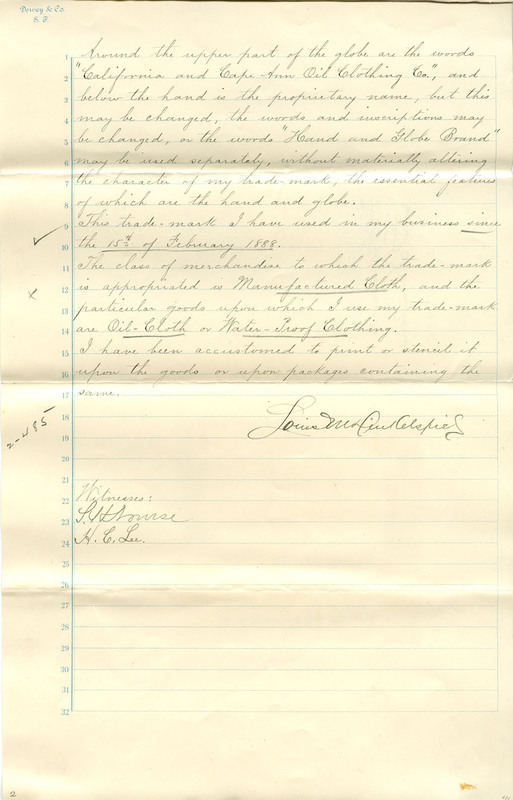 Dewey & Co
S. F.
1 Around the upper part of the globe are the words
2 "California and Cape Ann Oil Clothing Co.", and
3 below the hand is the proprietary name, but this
4 may be changed, the words and inscriptions may
5 be changed, or the words "Hand and Globe Brand"
6 may be used separately, without materially altering
7 the character of my trade-mark, the essential features
8 of which are the hand and globe.
9 This trade-mark I have used in my business since
10 the 15th of February 1888.
11 The class of merchandise to which the trade-mark
12 is appropriated is Manufactured Cloth, and the
13 particular goods upon which I use my trade-mark
14 are Oil-Cloth or Water-Proof Clothing.
15 I have been accustomed to print or stencil it
16 upon the goods or upon packages containing the
17 same.
2-485
18
19
20
21
22 Witnesses:
23 S. H. Nourse
24 H. C. Lee.
25
26
27
28
29
30
31
32
2